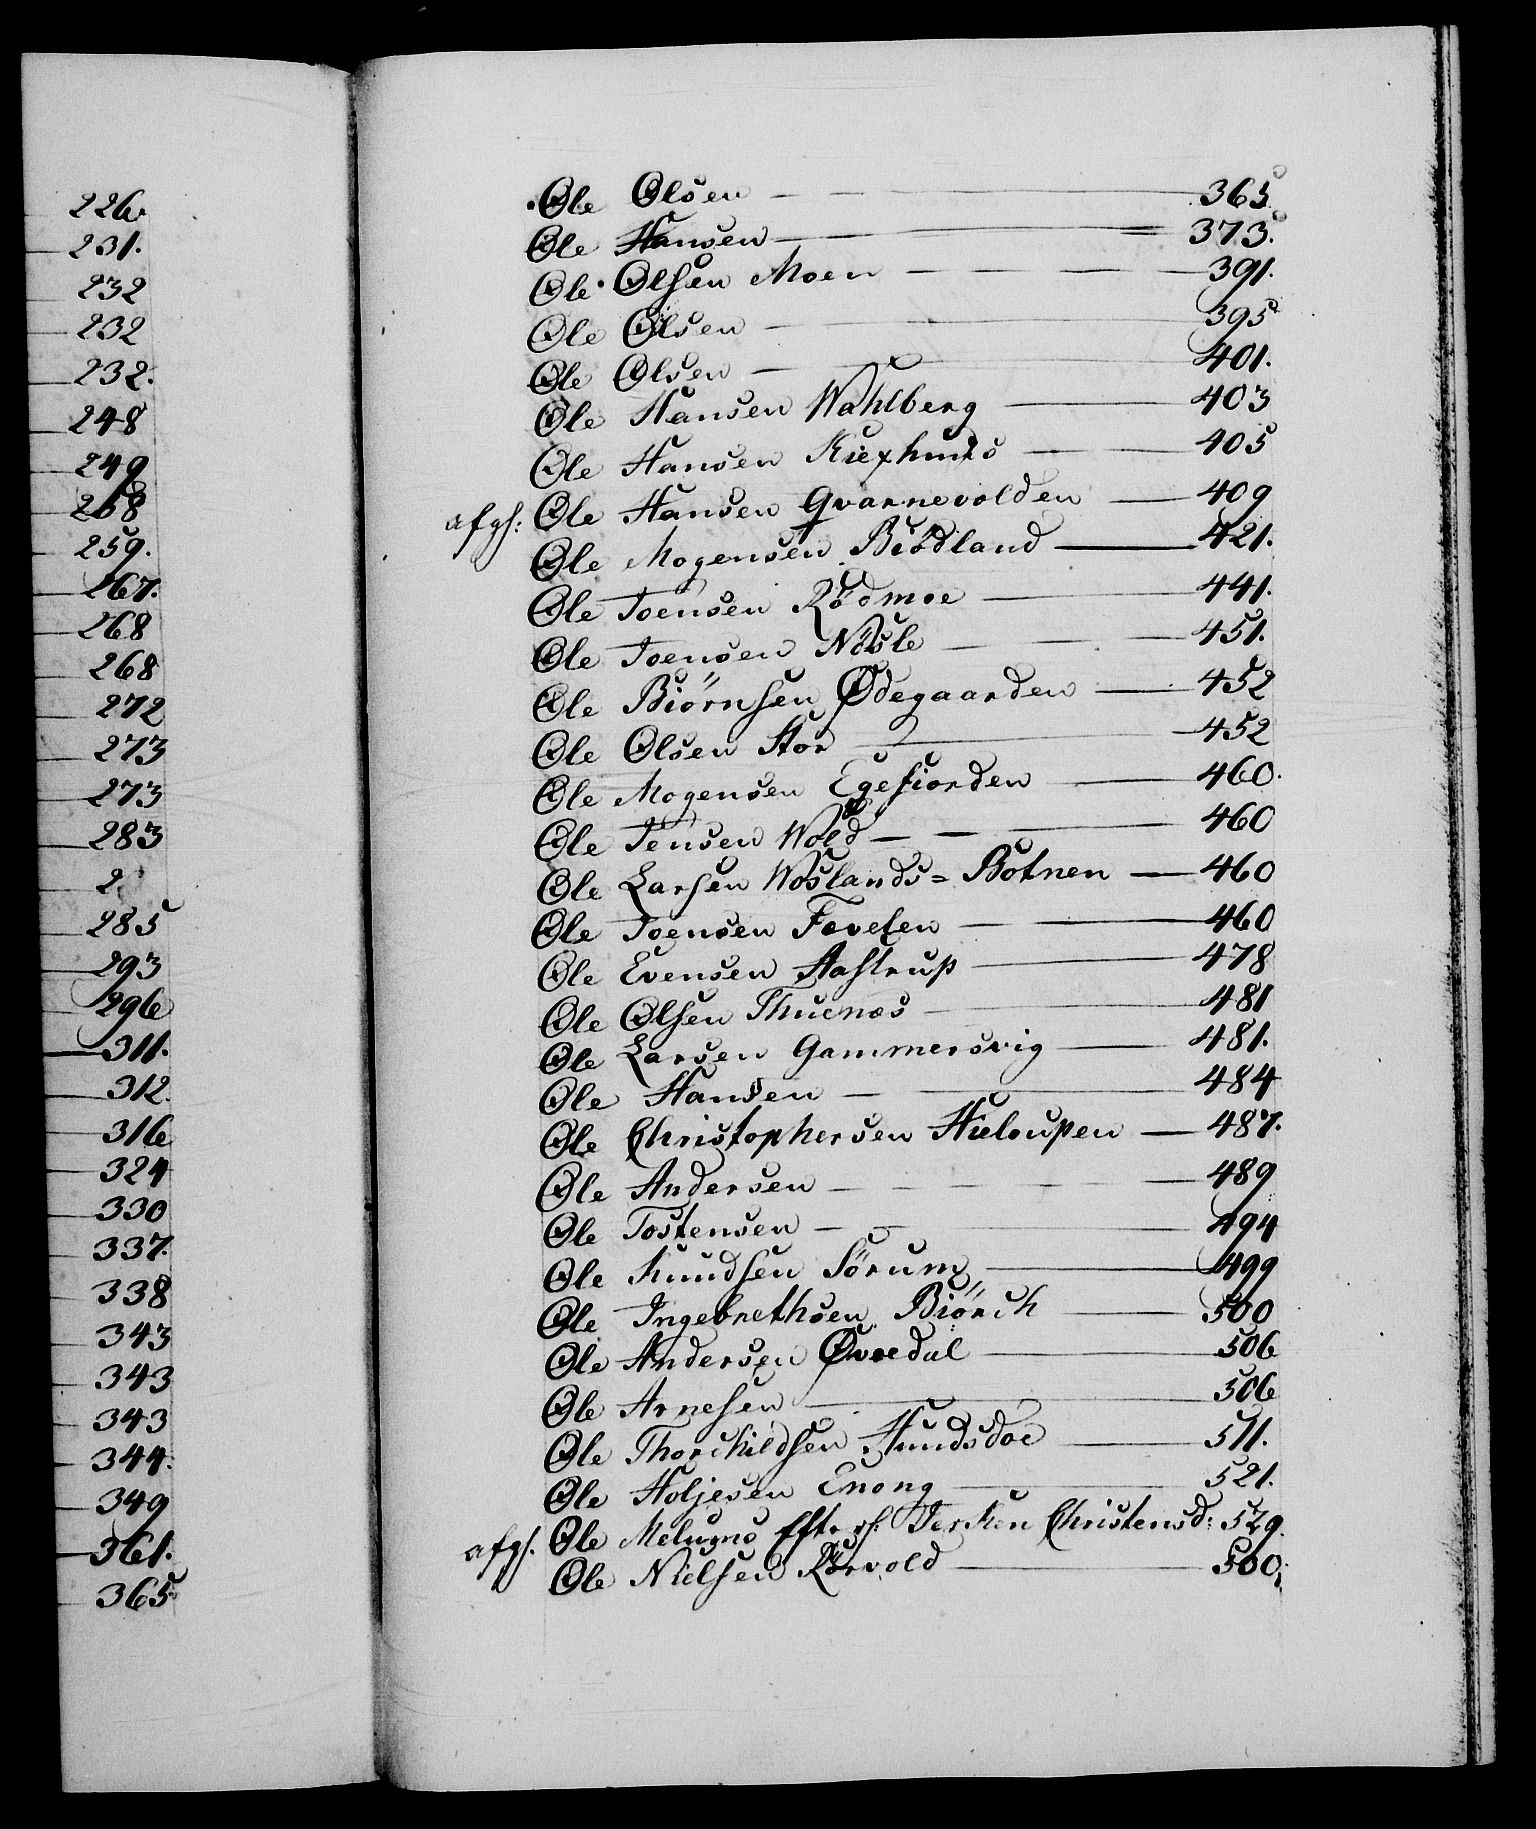 226.
231.
232
232
232.
248
249
258
259.
267.
268
268
272
273
273
283
2
285
293
296
311.
312.
316
324
330
337.
338
343
343
343
344.
349
361.
365
Ole Olsen — 365.
Ole Hansen — 373.
Ole Olsen Moen — 391.
Ole Olsen — 395
Ole Olsen — 401.
Ole Hansen Wahlberg — 403
Ole Hansen — 405
afgh: Ole Hansen Qvarnevolden — 409
Ole Mogensen Biödland — 421.
Ole Joensen Rödmoe — 441.
Ole Joensen Nösle — 451.
Ole Biörnsen Ødegaarden — 452
Ole Olsen Stor — 452
Ole Mogensen Egefiorden — 460.
Ole Jensen Wold — 460
Ole Larsen Woslands= Botnen — 460
Ole Joensen Fovelen — 460
Ole Evensen Aastrup — 478
Ole Olsen Thuenæs — 481
Ole Larsen Gammersvig — 481.
Ole Hansen — 484
Ole Christophersen Hieloupen — 487.
Ole Andersen — 489
Ole Tostensen — 494
Ole Knudsen Sörum — 499
Ole Ingebrethsen Biörch — 500
Ole Andersen Øvredal — 506
Ole Arnesen — 506
Ole Thorchildsen Hundsdoe — 511.
Ole Holjesen Enong — 521.
afgh. Ole Christensd: 529.
Ole Nielsen Rörvold — 500.